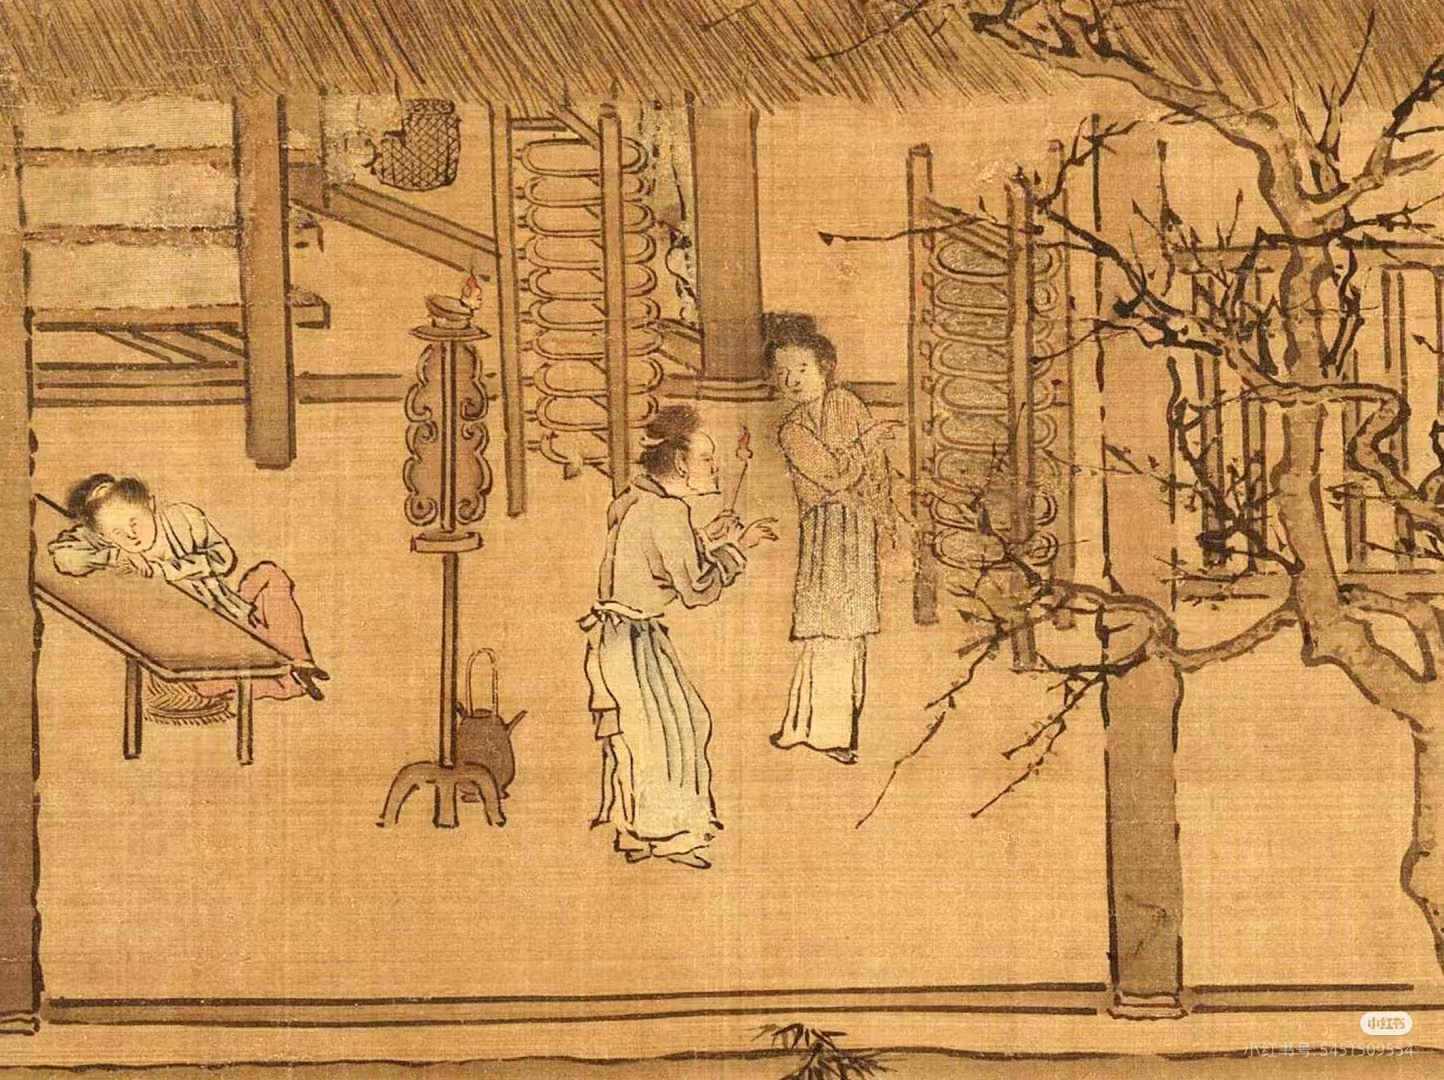 小红书
小红书号 5451509554